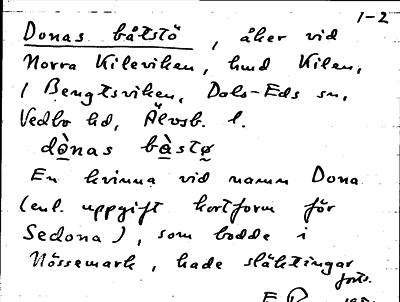 1-2
Donas båtstö, åker vid
Norra Kileviken, hmd Kilen,
i Bengtsviken, Dals-Eds sn,
Vedbo hd, Älvsb. l.
dònas bàstø
En kvinna vid namn Dona
(enl. uppgift kortform för
Sedona), som bodde i
Nössemark, hade släktingar
forts.